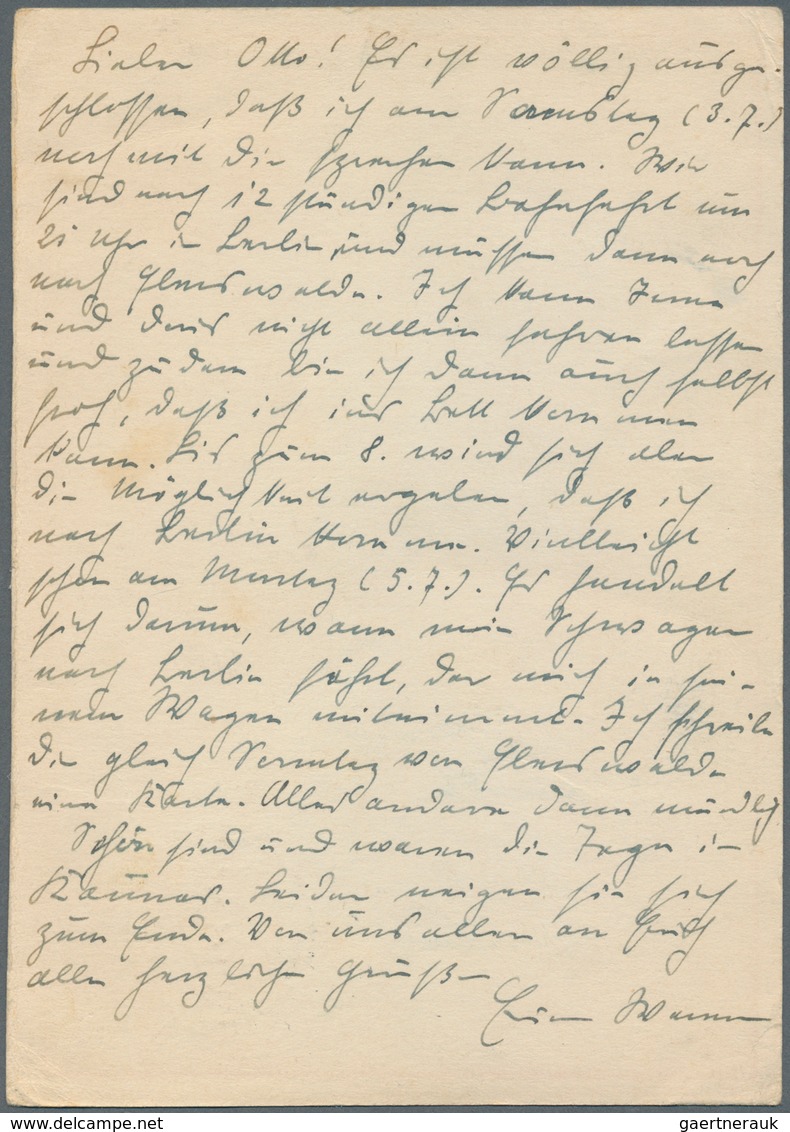 Lieber Otto! Es ist völlig ausge-
schlossen, daß ich am Samstag (3.7.)
noch mit Dir sprechen kann. Wir
sind nach 12 stündiger Bahnfahrt um
21 Uhr in Berlin, und müssen dann noch
nach Eberswalde. Ich kann
und nicht allein fahren lassen
und zudem bin ich dann auch selbst
froh, daß ich ins Bett kommen
kann. Bis zum 8. wird sich aber
die Möglichkeit ergeben, daß ich
nach Berlin komme. Vielleicht
schon am Montag (5.7.). Es handelt
sich darum, wann mein Schwager
nach Berlin fährt, der mich in sei-
nem Wagen mitnimmt. Ich schreibe
Dir gleich Sonntag von Eberswalde
eine Karte. Alles andere dann mündlich
Schön sind und waren die Tage in
Kaunas. Leider neigen sie sich
zum Ende. Von uns allen an Euch
alle herzliche Grüße
gaertnerauk